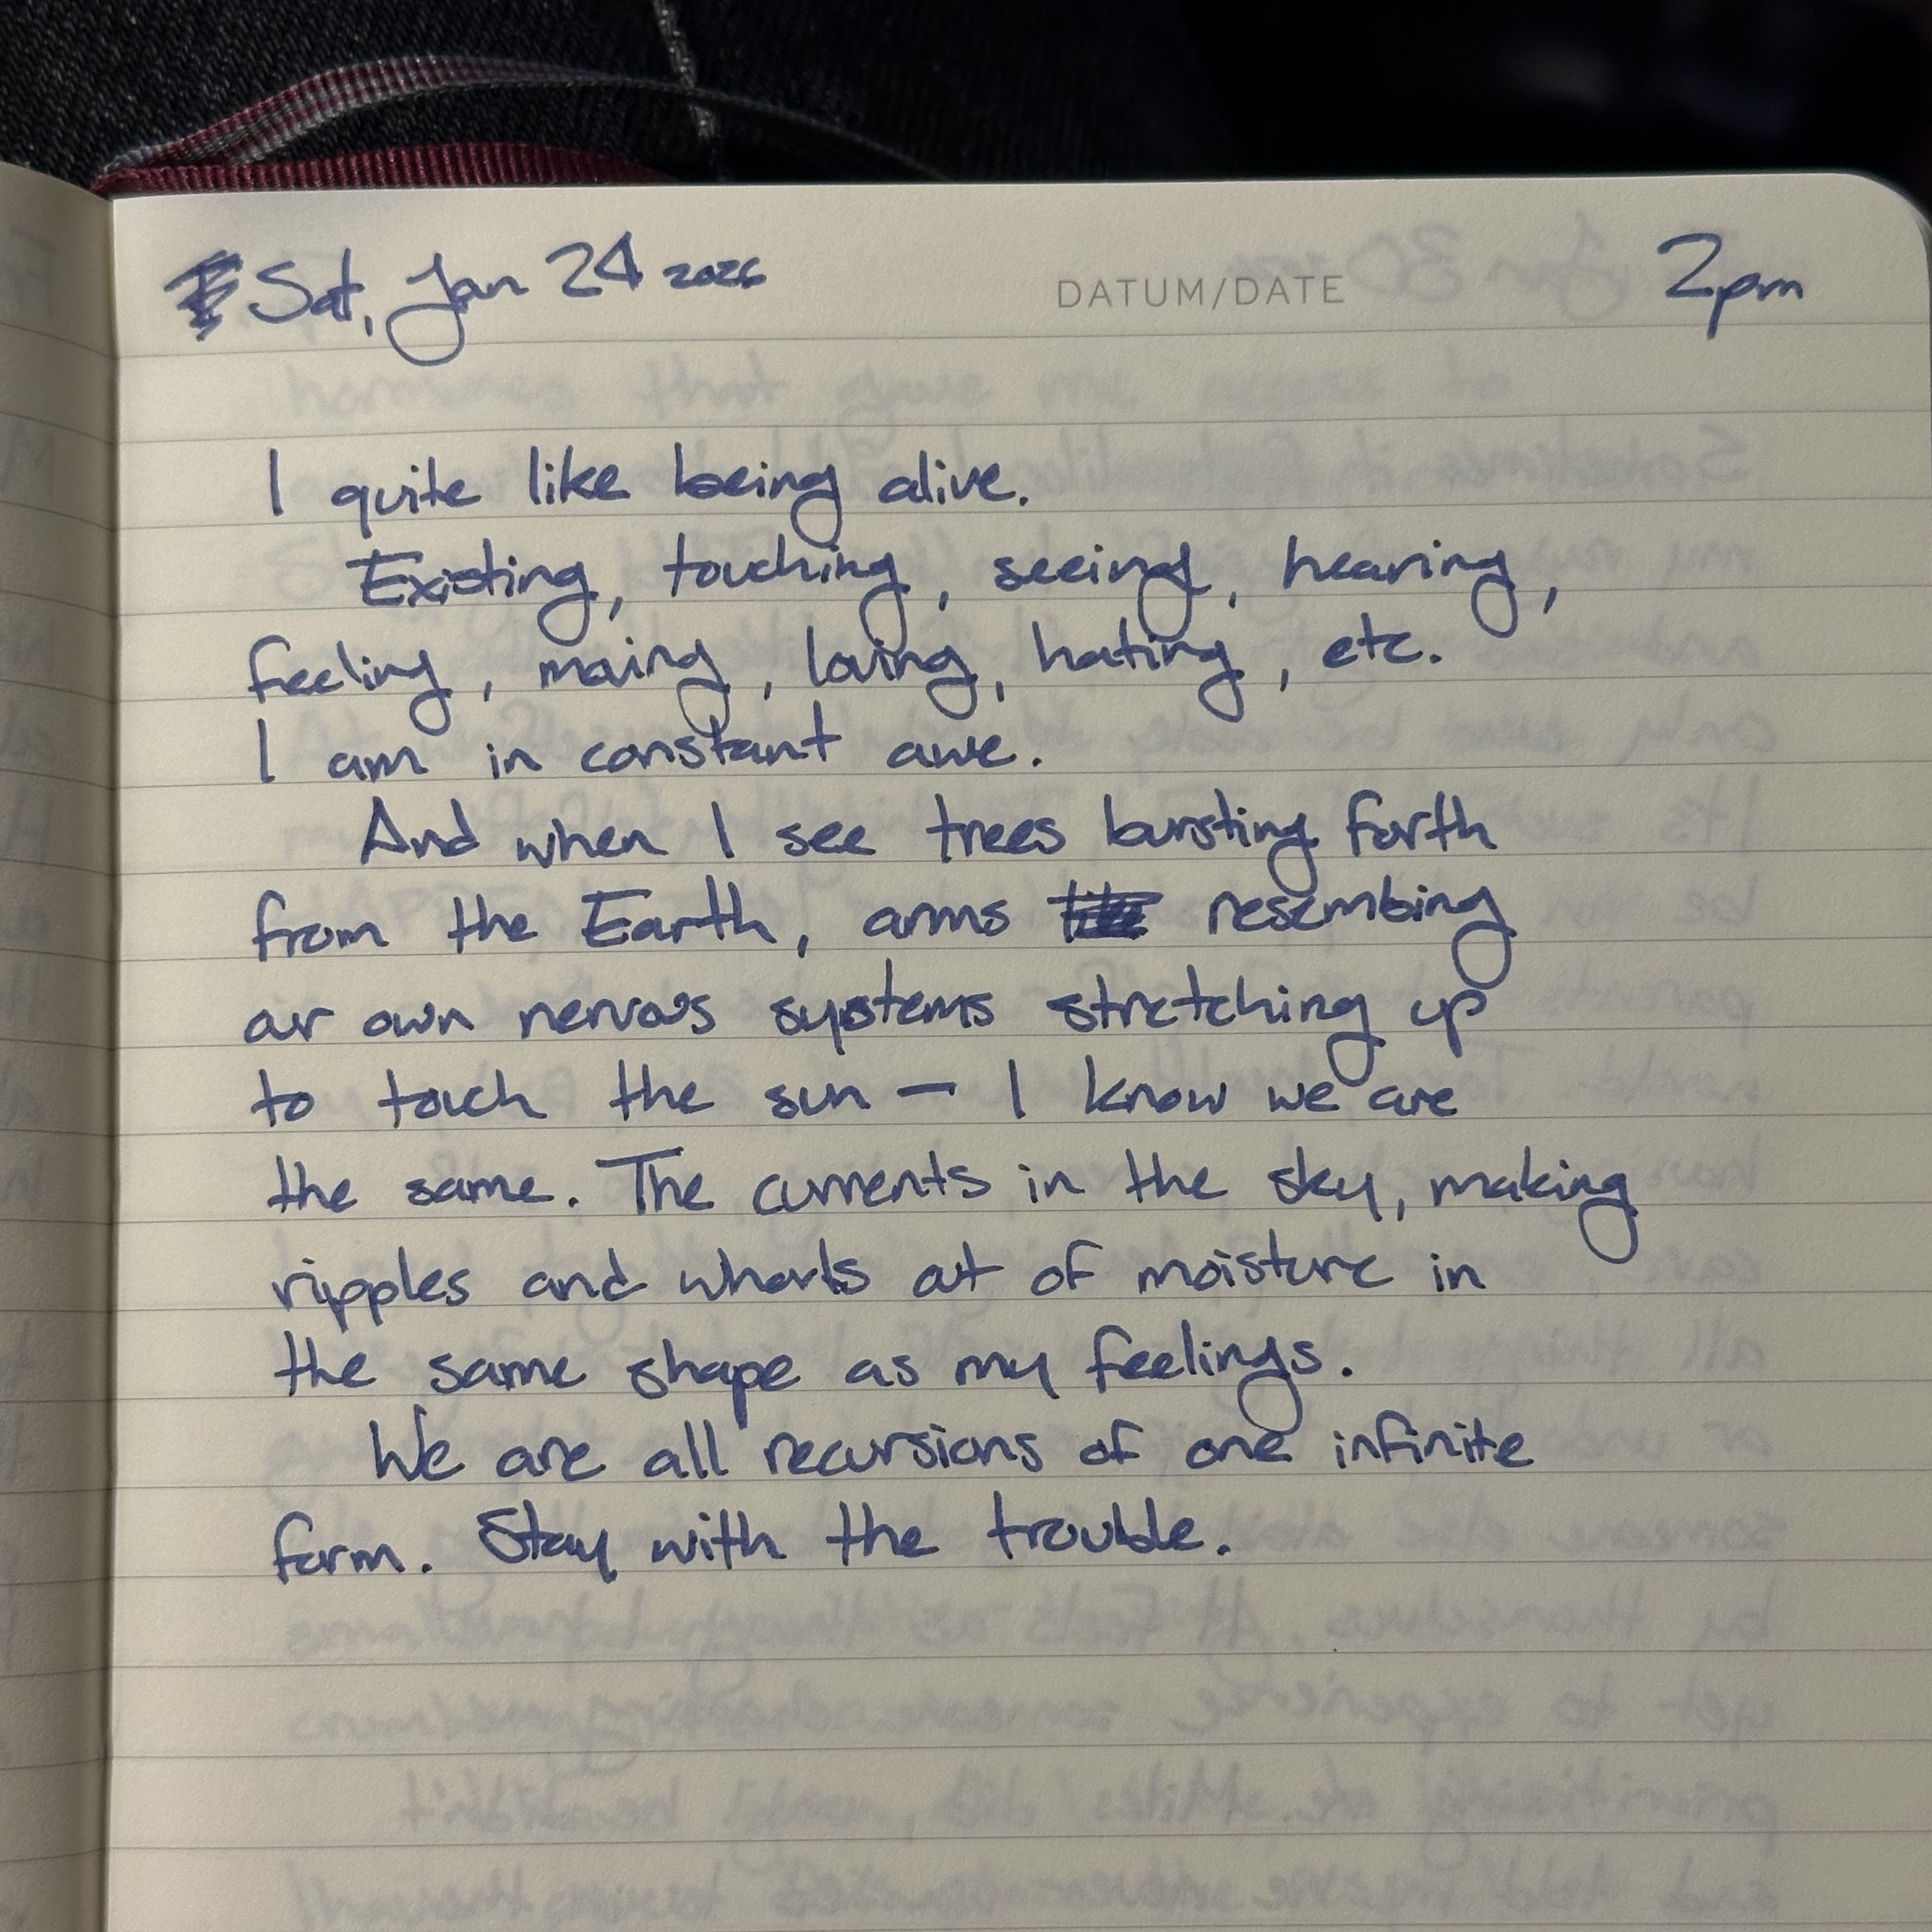 Sat, Jan 24 2026 DATUM/DATE 2pm
I quite like being alive.
Existing, touching, seeing, hearing,
feeling, moving, loving, hating, etc.
I am in constant awe.
And when I see trees bursting forth
from the Earth, arms resembing
our own nervous systems stretching up
to touch the sun — I know we are
the same. The currents in the sky, making
ripples and whorls out of moisture in
the same shape as my feelings.
We are all recursions of one infinite
form. Stay with the trouble.